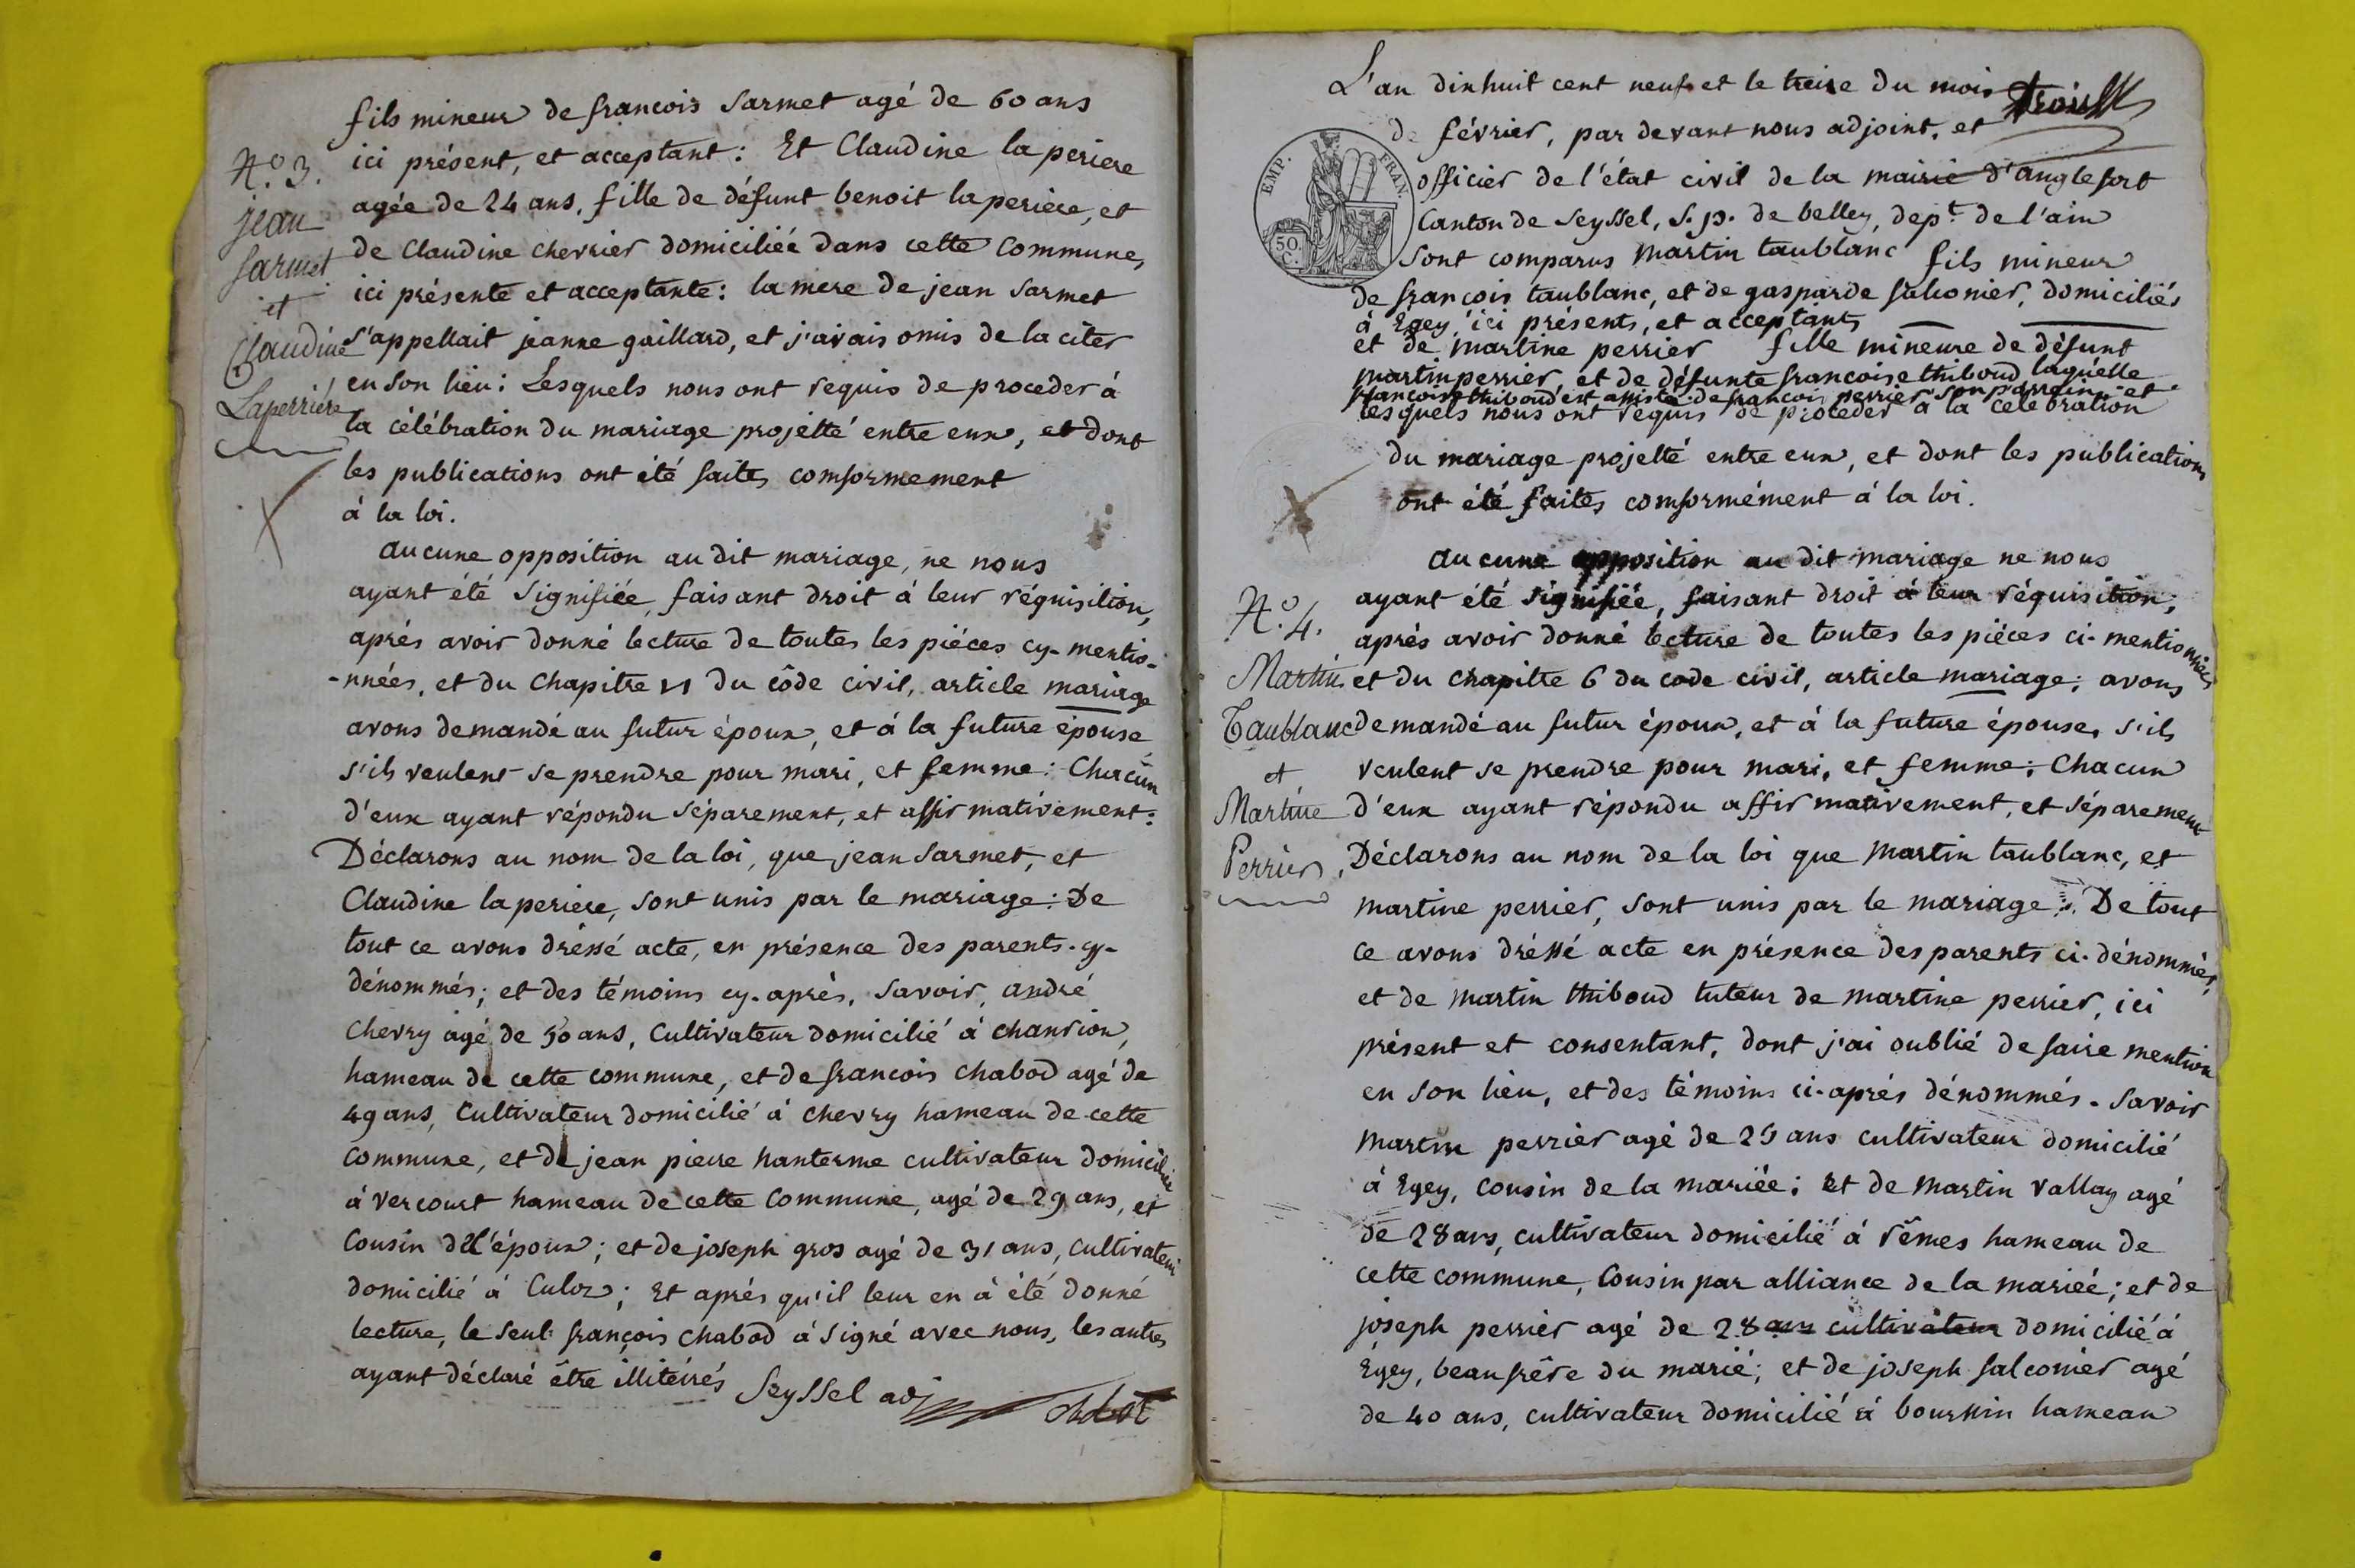 fils mineur de françois Sarmet agé de 60 ans
ici présent, et acceptant: Et Claudine la periere
agée de 24 ans, fille de défunt benoit la periere, et
de Claudine chevrier domiciliée dans cette Commune,
ici présente et acceptante: la mere de jean Sarmet
s'appellait jeanne gaillard, et j'avais omis de la citer
en son lieu: Lesquels nous ont requis de proceder à
la célébration du mariage projetté entre eux, et dont
les publications ont été faites comformement
à la loi.
N.º 3.
jean
Sarmet
et
Claudine
Laperrière
aucune opposition au dit mariage, ne nous
ayant été Signifiée, faisant droit à leur réquisition,
aprés avoir donné lecture de toutes les piéces cy-mentio-
-nnées, et du Chapitre VI du côde civil, article mariage
avons demandé au futur époux, et à la future épouse
s'ils veulent se prendre pour mari, et femme: Chacun
d'eux ayant répondu séparement, et affirmativement:
Déclarons au nom de la loi, que jean Sarmet, et
Claudine la periere, sont unis par le mariage: De
tout ce avons dréssé acte, en présence des parents-cy-
dénommés; et des témoins cy-aprés, Savoir, andré
Chevry agé de 50 ans, Cultivateur domicilié à chanrion,
hameau de cette commune, et de francois chabod agé de
49 ans, Cultivateur domicilié à chevry hameau de cette
Commune, et de jean pierre hanterme cultivateur domicilié
à vercourt hameau de cette Commune, agé de 29 ans, et
Cousin de l'époux; et de joseph gros agé de 31 ans, cultivateur
domicilié à Culoz; Et aprés qu'il leur en à été donné
lecture, le Seul françois chabod à signé avec nous, les autres
ayant déclaré être illitéirés
Seyssel adj chabot
L'an dixhuit cent neuf et le treize du mois
de février, par devant nous adjoint, et
officier de l'état civil de la mairie d'anglefort
Canton de Seyssel, S. p. de belley, dep.t de l'ain
Sont comparus martin taublanc fils mineur
de francois taublanc, et de gasparde falconier, domiciliés
à Egey, ici présents, et acceptants
et de martine perrier fille mineure de défunt
martin perrier, et de défunte francoise thiboud laquelle
francoise thiboud est assistée de francois perrier son parrain et
lesquels nous ont requis de procéder à la célébration
du mariage projetté entre eux, et dont les publications
ont été faites comformément à la loi.
EMP. FRAN.
50.
C.
N.º 4.
Martin
Taublanc
et
Martine
Perrier.
aucune opposition au dit mariage ne nous
ayant été signifiée, faisant droit à leur réquisition;
aprés avoir donné lecture de toutes les piéces ci-mentionnées
et du chapitre 6 du code civil, article mariage: avons
demandé au futur époux, et à la future épouse, s'ils
veulent se prendre pour mari, et femme: Chacun
d'eux ayant répondu affirmativement, et séparement
Déclarons au nom de la loi que martin taublanc, et
martine perrier, sont unis par le mariage: De tout
ce avons dréssé acte en présence des parents ci-dénommés,
et de martin thiboud tuteur de martine perrier, ici
présent et consentant, dont j'ai oublié de faire mention
en son lieu, et des témoins ci-aprés dénommés. Savoir
martin perrier agé de 29 ans cultivateur domicilié
à Egey, cousin de la mariée: et de martin vallay agé
de 28 ans, cultivateur domicilié à rêmes hameau de
cette commune, Cousin par alliance de la mariée; et de
joseph perrier agé de 28 ans cultivateur domicilié à
Egey, beau frére du marié; et de joseph falconier agé
de 40 ans, cultivateur domicilié à boursin hameau